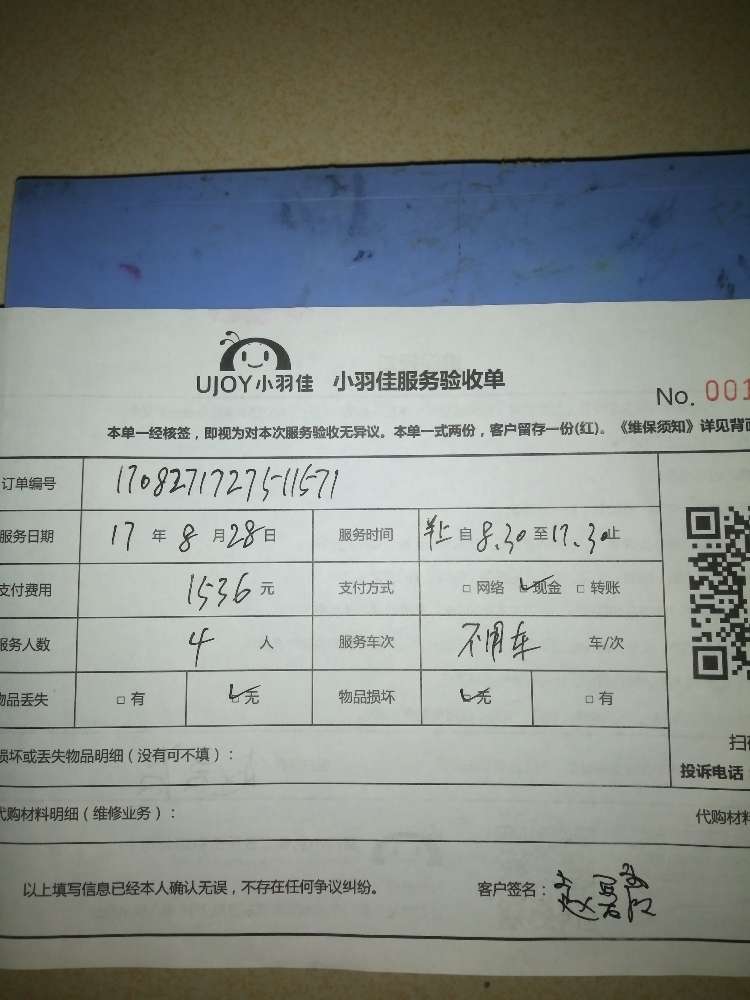 UJOY小羽佳 小羽佳服务验收单
No. 001
本单一经核签，即视为对本次服务验收无异议。本单一式两份，客户留存一份(红)。《维保须知》详见背面
订单编号 17082717275-11571
服务日期 17 年 8 月 28 日 服务时间 早上 自 8.30 至 17.30 止
支付费用 1536 元 支付方式 □ 网络 ☑ 现金 □ 转账
服务人数 4 人 服务车次 不用车 车/次
物品丢失 □ 有 ☑ 无 物品损坏 ☑ 无 □ 有
扫
损坏或丢失物品明细（没有可不填）：
投诉电话
代购材料明细（维修业务）： 代购材料
以上填写信息已经本人确认无误，不存在任何争议纠纷。 客户签名：